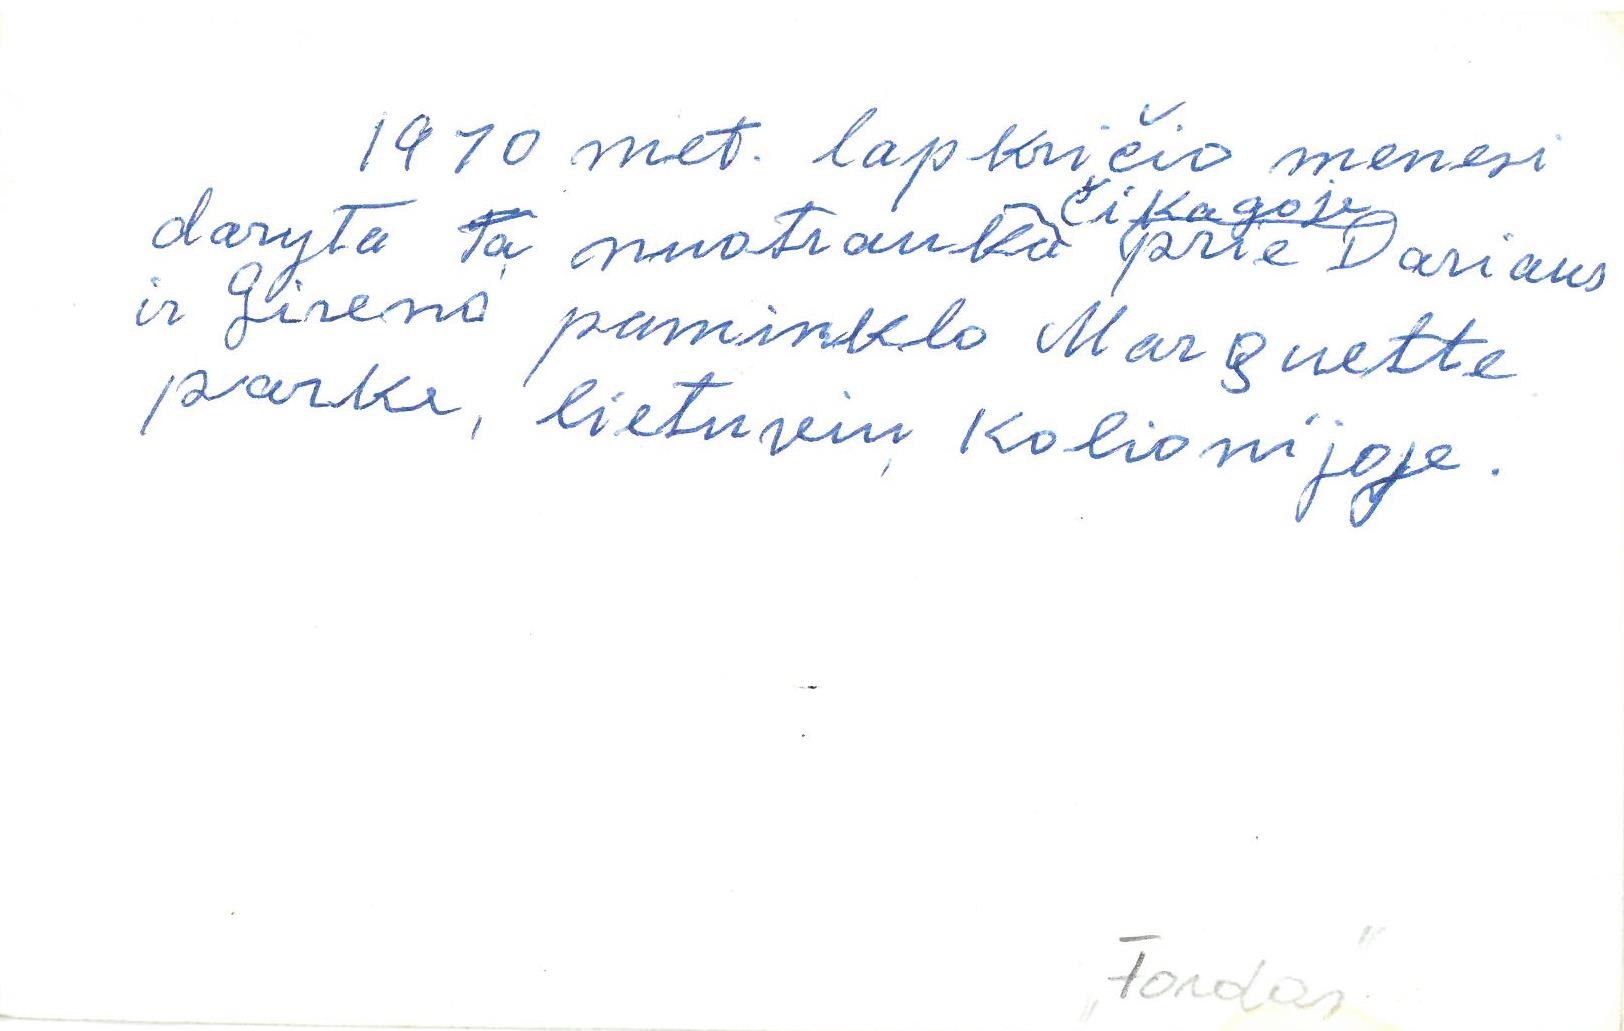 1970 met. lapkričio menesi
daryta tą nuotrauka Čikagoje prie Dariaus
ir Girėno paminklo Marquette
parke, lietuvių kolionijoje.
„Fordas"